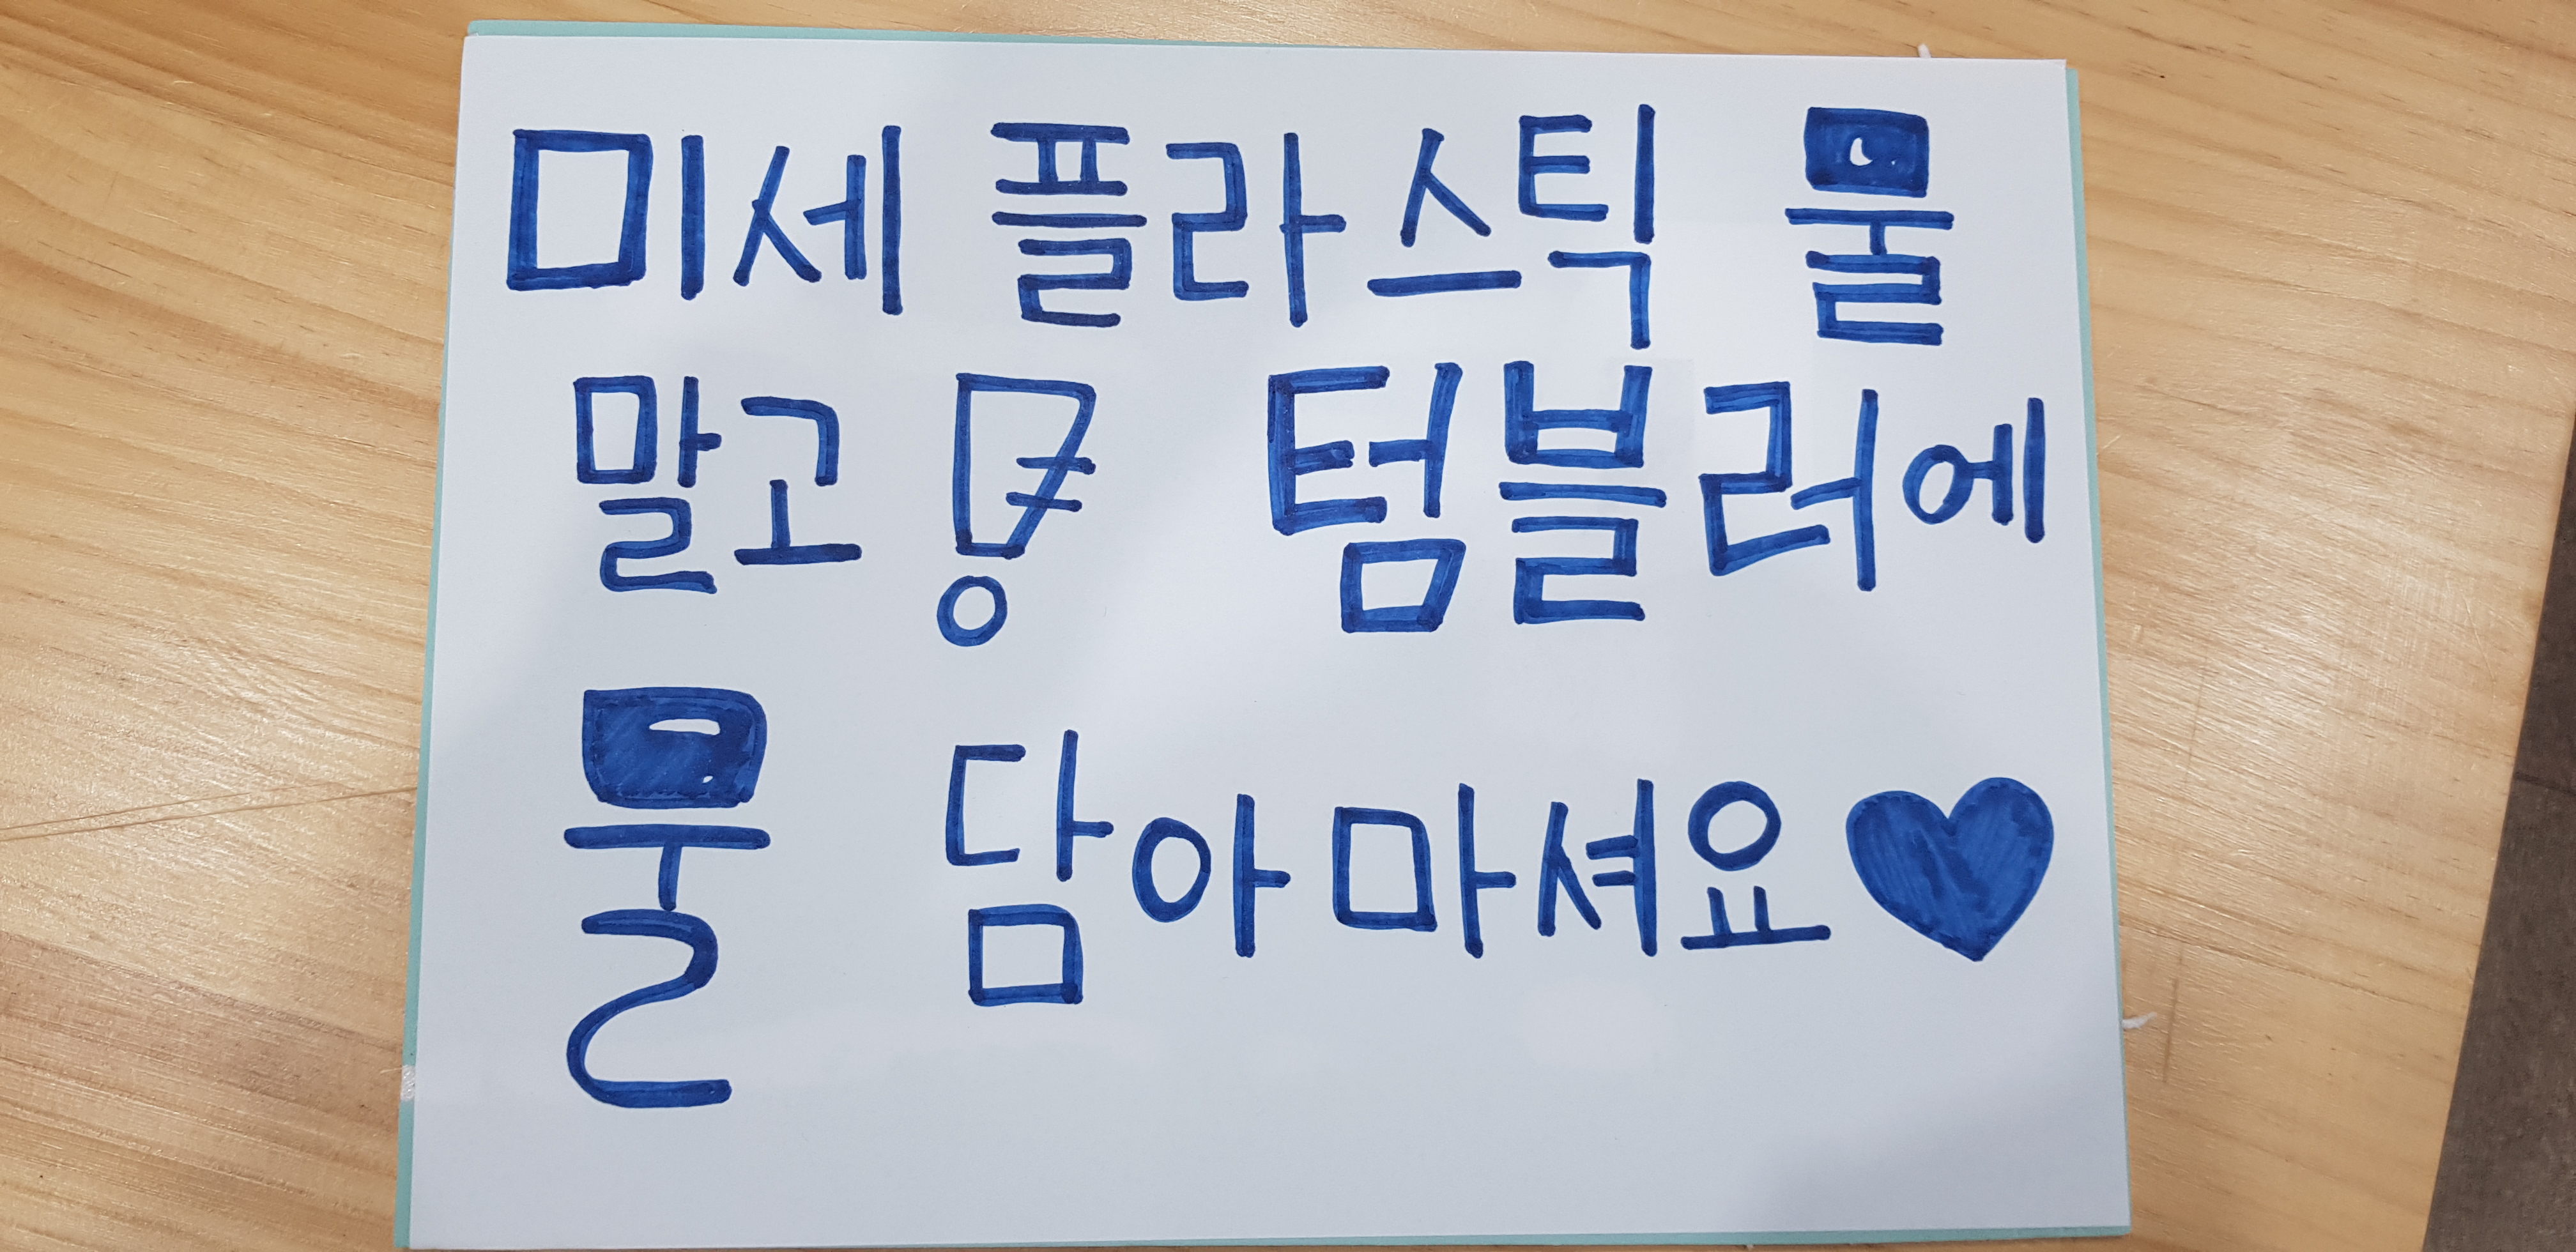 미세 플라스틱 물
말고 텀블러에
물 담아 마셔요